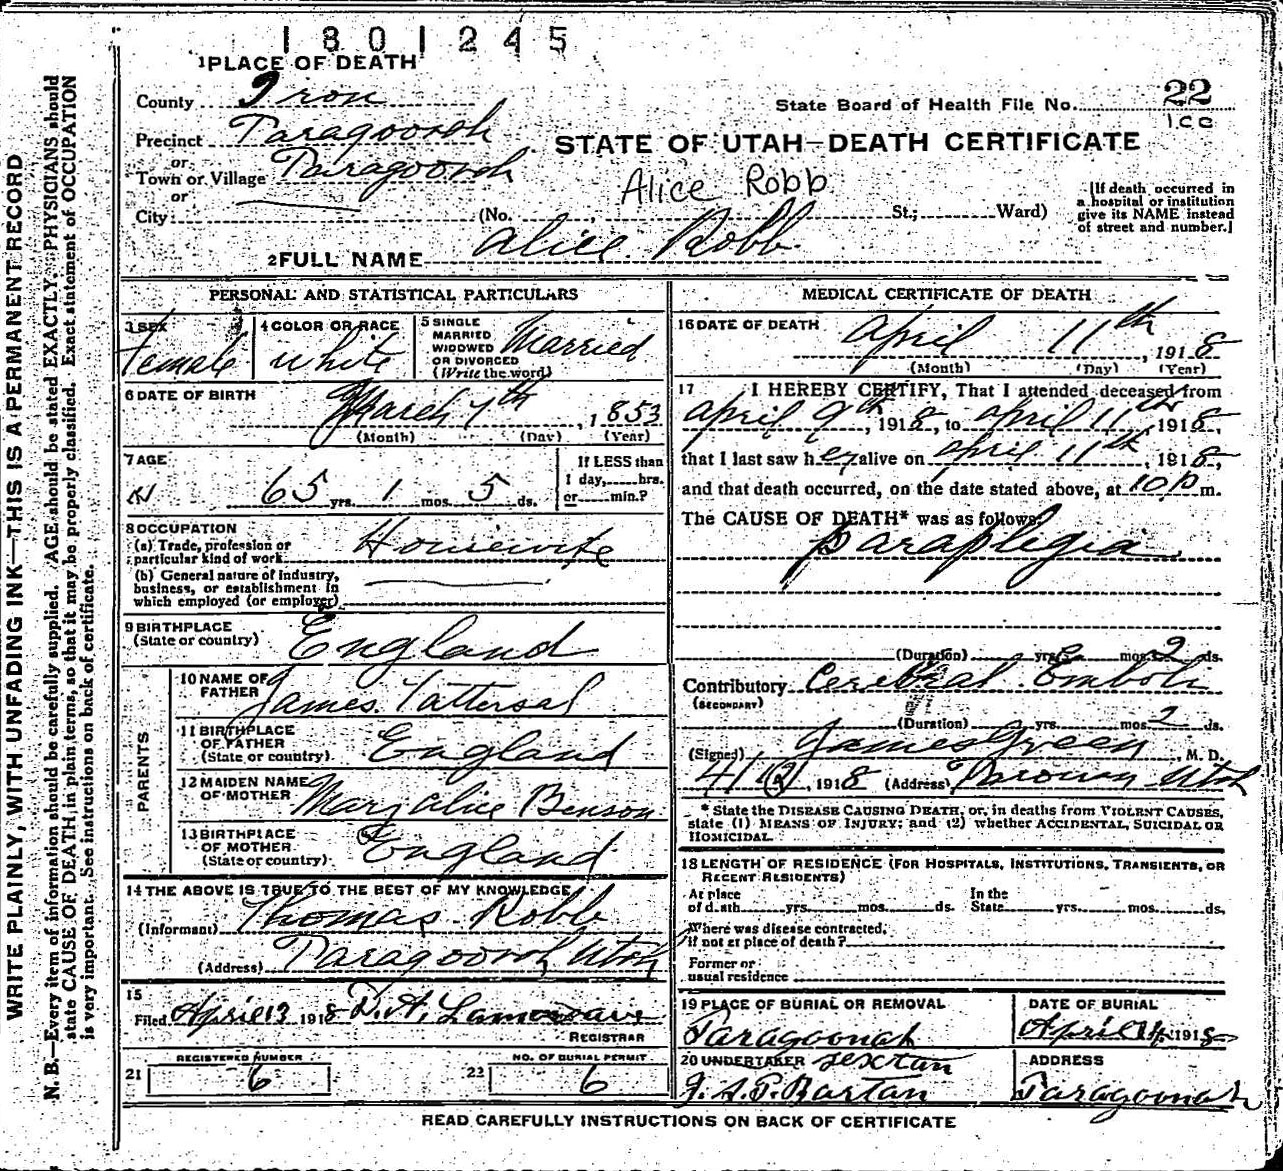 1801245
1 PLACE OF DEATH
County Iron
State Board of Health File No. 22
Precinct Paragoonah
STATE OF UTAH—DEATH CERTIFICATE
or
Town or Village Paragoonah
or
Alice Robb
City (No. , St.; Ward)
[If death occurred in
a hospital or institution
give its NAME instead
of street and number.]
2 FULL NAME Alice Robb
PERSONAL AND STATISTICAL PARTICULARS
3 SEX
Female
4 COLOR OR RACE
white
5 SINGLE
MARRIED
WIDOWED
OR DIVORCED
(Write the word)
Married
6 DATE OF BIRTH
March 7th, 1853
(Month) (Day) (Year)
7 AGE
65 yrs. 1 mos. 5 ds.
If LESS than
1 day, hrs.
or min.?
8 OCCUPATION
(a) Trade, profession or
particular kind of work Housewife
(b) General nature of industry,
business, or establishment in
which employed (or employer)
9 BIRTHPLACE
(State or country) England
PARENTS
10 NAME OF
FATHER James Tattersal
11 BIRTHPLACE
OF FATHER
(State or country) England
12 MAIDEN NAME
OF MOTHER Mary Alice Benson
13 BIRTHPLACE
OF MOTHER
(State or country) England
14 THE ABOVE IS TRUE TO THE BEST OF MY KNOWLEDGE
(Informant) Thomas Robb
(Address) Paragoonah Utah
15
Filed April 13 1918
REGISTRAR
REGISTERED NUMBER
21 6
NO. OF BURIAL PERMIT
22 6
MEDICAL CERTIFICATE OF DEATH
16 DATE OF DEATH
April 11th, 1918
(Month) (Day) (Year)
17 I HEREBY CERTIFY, That I attended deceased from
April 9th, 1918, to April 11th, 1918,
that I last saw her alive on April 11th, 1918,
and that death occurred, on the date stated above, at 10 p m.
The CAUSE OF DEATH* was as follows:
Paraplegia
(Duration) yrs. mos. 2 ds.
Contributory Cerebral Emboli
(SECONDARY)
(Duration) yrs. mos. 2 ds.
(Signed) James Green, M. D.
4/12, 1918 (Address) Parowan Utah
* State the DISEASE CAUSING DEATH, or, in deaths from VIOLENT CAUSES,
state (1) MEANS OF INJURY; and (2) whether ACCIDENTAL, SUICIDAL OR
HOMICIDAL.
18 LENGTH OF RESIDENCE (FOR HOSPITALS, INSTITUTIONS, TRANSIENTS, OR
RECENT RESIDENTS)
At place
of death yrs. mos. ds.
In the
State yrs. mos. ds.
Where was disease contracted,
if not at place of death?
Former or
usual residence
19 PLACE OF BURIAL OR REMOVAL
Paragoonah
DATE OF BURIAL
April 14, 1918
20 UNDERTAKER sextan
Bartan
ADDRESS
Paragoonah
READ CAREFULLY INSTRUCTIONS ON BACK OF CERTIFICATE
WRITE PLAINLY, WITH UNFADING INK—THIS IS A PERMANENT RECORD
N. B.—Every item of information should be carefully supplied. AGE should be stated EXACTLY. PHYSICIANS should
state CAUSE OF DEATH in plain terms, so that it may be properly classified. Exact statement of OCCUPATION
is very important. See instructions on back of certificate.